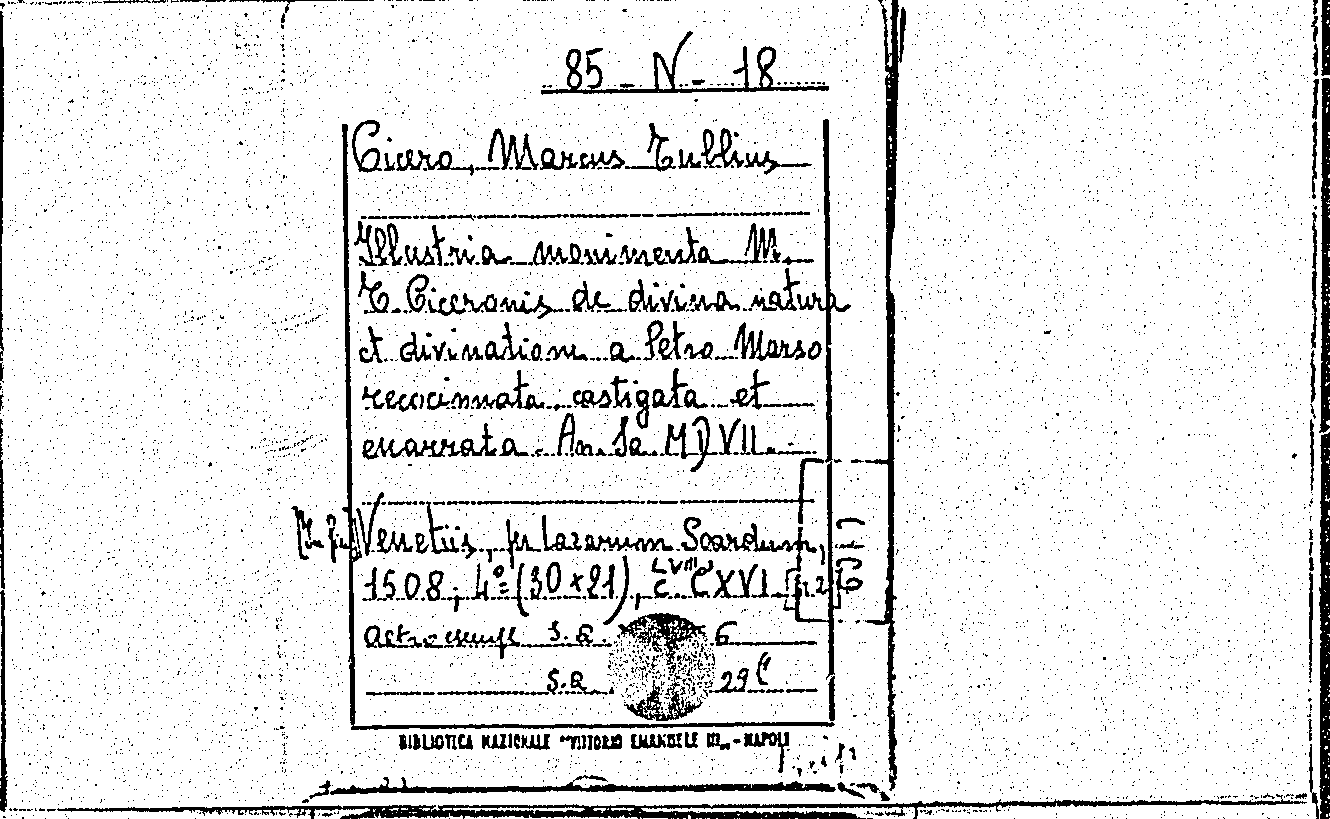 85 - N - 18
Cicero, Marcus Tullius
Illustria monimenta M.
T. Ciceronis de divina natura
et divinatione a Petro Marso
reconcinnata castigata et
enarrata. An. Sa. MDVII.
Venetiis, per Lazarum Soardum,
1508; 4º (30 x 21), c. CXVI
S.Q. 6
S.Q. 29
BIBLIOTECA NAZIONALE "VITTORIO EMANUELE III" - NAPOLI